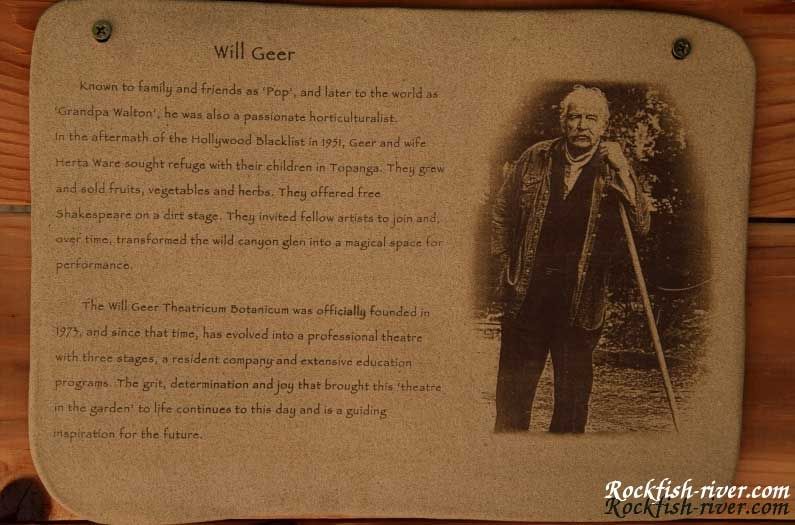 Will Geer
Known to family and friends as 'Pop', and later to the world as
'Grandpa Walton', he was also a passionate horticulturalist.
In the aftermath of the Hollywood Blacklist in 1951, Geer and wife
Herta Ware sought refuge with their children in Topanga. They grew
and sold fruits, vegetables and herbs. They offered free
Shakespeare on a dirt stage. They invited fellow artists to join and,
over time, transformed the wild canyon glen into a magical space for
performance.
The Will Geer Theatricum Botanicum was officially founded in
1973, and since that time, has evolved into a professional theatre
with three stages, a resident company and extensive education
programs. The grit, determination and joy that brought this 'theatre
in the garden' to life continues to this day and is a guiding
inspiration for the future.
Rockfish-river.com
Rockfish-river.com